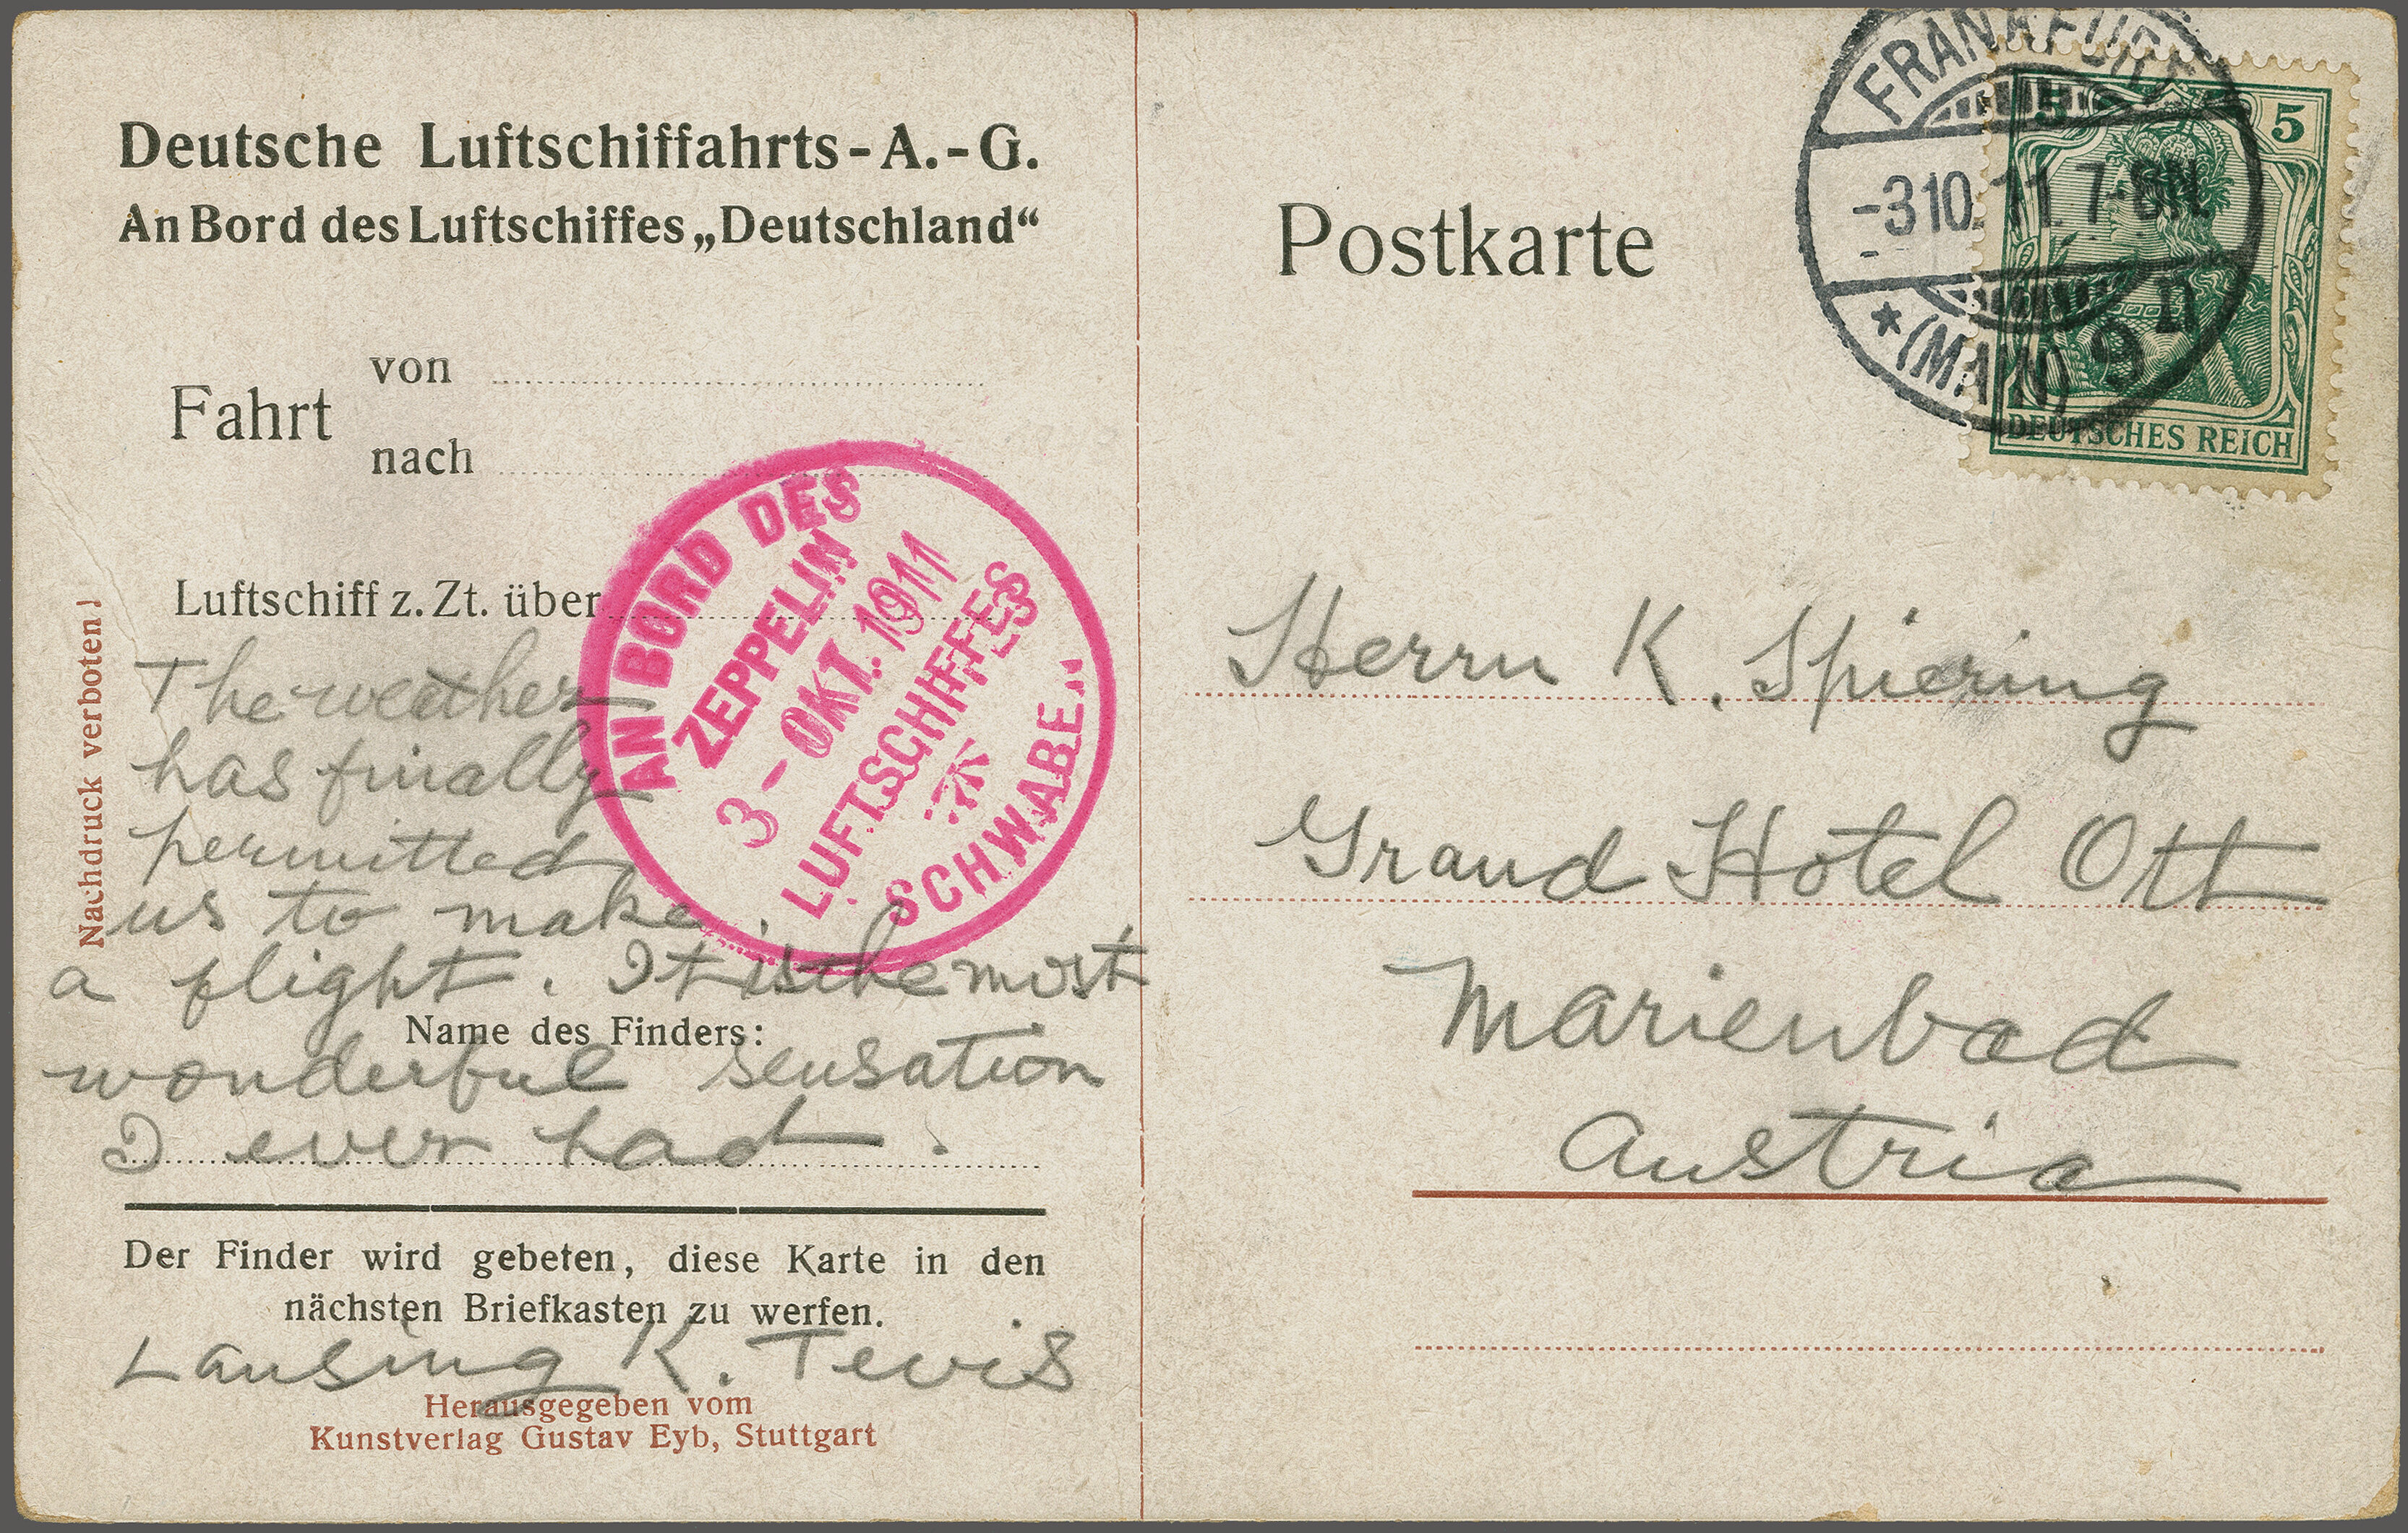 Deutsche Luftschiffahrts-A.-G.
An Bord des Luftschiffes „Deutschland“
Fahrt
von
nach
Luftschiff z. Zt. über
AN BORD DES
ZEPPELIN
3-OKT. 1911
LUFTSCHIFFES
SCHWABE„
The weather
has finally
permitted
us to make
a flight. It is the most
Name des Finders:
wonderful sensation
I ever had.
Der Finder wird gebeten, diese Karte in den
nächsten Briefkasten zu werfen.
Lansing K. Tevis
Herausgegeben vom
Kunstverlag Gustav Eyb, Stuttgart
Nachdruck verboten!
Postkarte
FRANKFURT
-3 10. 11. 7-8N.
* (MAIN) 9 n
5 5
DEUTSCHES REICH
Herrn K. Spiering
Grand Hotel Ott
Marienbad
Austria